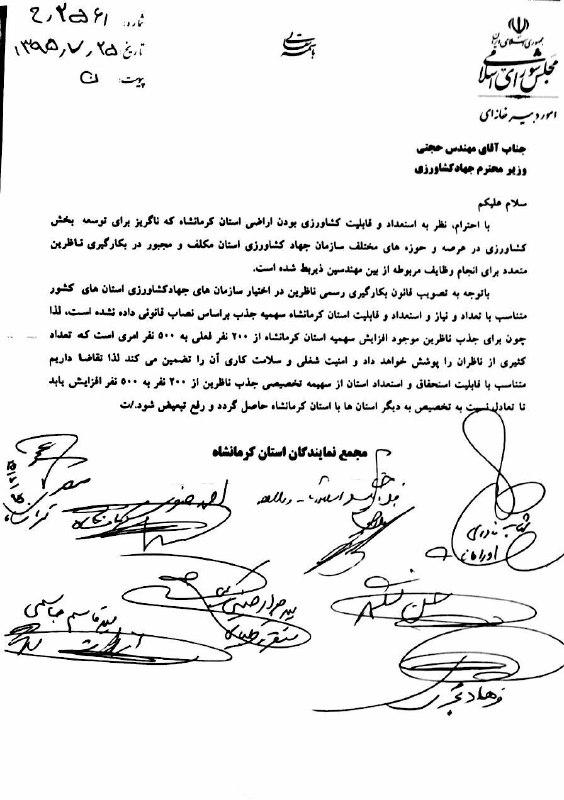 شماره: ۲۵۶۱ رح
تاریخ ۱۳۹۵/۷/۲۵
پیوست: ن
باسمه تعالی
جمهوری اسلامی ایران
مجلس شورای اسلامی
امور دبیرخانه‌ای
جناب آقای مهندس حجتی
وزیر محترم جهادکشاورزی
سلام علیکم
با احترام، نظر به استعداد و قابلیت کشاورزی بودن اراضی استان کرمانشاه که ناگزیر برای توسعه بخش
کشاورزی در عرصه و حوزه های مختلف سازمان جهاد کشاورزی استان مکلف و مجبور در بکارگیری ناظرین
متعدد برای انجام وظایف مربوطه از بین مهندسین ذیربط شده است.
باتوجه به تصویب قانون بکارگیری رسمی ناظرین در اختیار سازمان های جهادکشاورزی استان های کشور
متناسب با تعداد و نیاز و استعداد و قابلیت استان کرمانشاه سهمیه جذب براساس نصاب قانونی داده نشده است، لذا
چون برای جذب ناظرین موجود افزایش سهمیه استان کرمانشاه از ۲۰۰ نفر فعلی به ۵۰۰ نفر امری است که تعداد
کثیری از ناظران را پوشش خواهد داد و امنیت شغلی و سلامت کاری آن را تضمین می کند لذا تقاضا داریم
متناسب با قابلیت استحقاق و استعداد استان از سهیمه تخصیصی جذب ناظرین از ۲۰۰ نفر به ۵۰۰ نفر افزایش یابد
تا تعادل نسبت به تخصیص به دیگر استان ها با استان کرمانشاه حاصل گردد و رفع تبعیض شود./ت
مجمع نمایندگان استان کرمانشاه
احمد صفری
کرمانشاه
شهاب نادری
اورامانات
حسن
سید قاسم جاسمی
فرهاد تجری